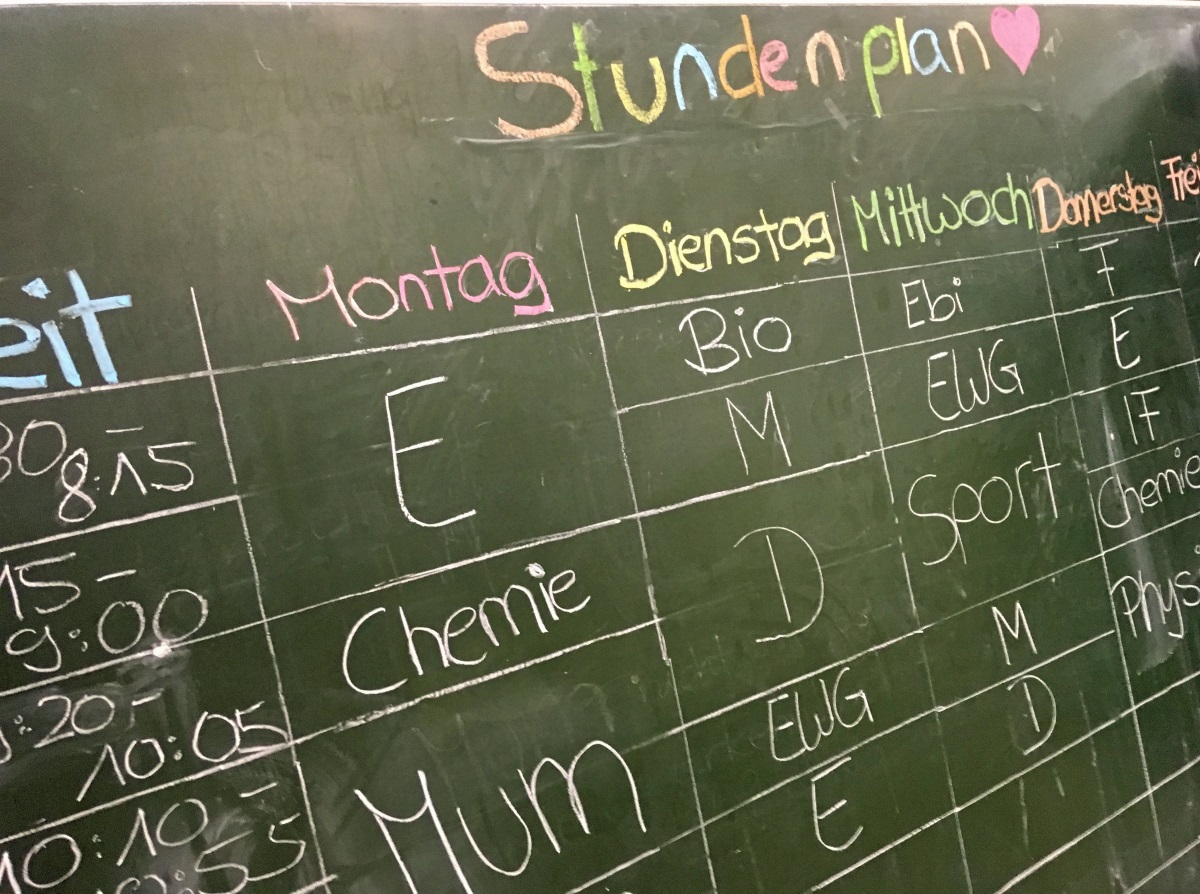 Stundenplan
eit Montag Dienstag Mittwoch Donnerstag Frei
30 - 8:15 E Bio Ebi F
15 - 9:00 M EWG E
:20 - 10:05 Chemie D Sport IF
10:10 - :55 Mum EWG M Chemie
E D Physi